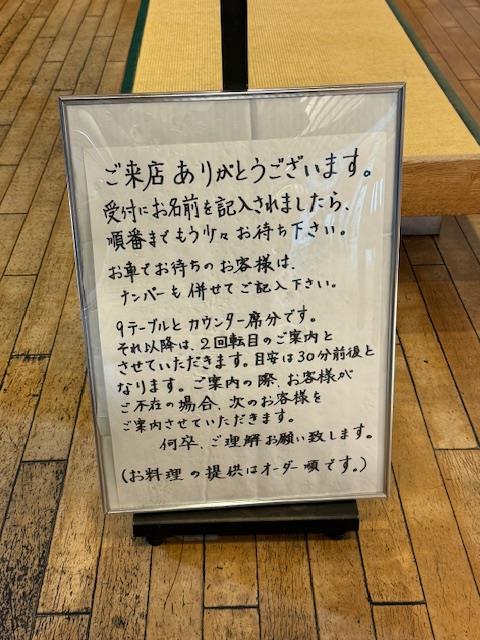 ご来店ありがとうございます。
受付にお名前を記入されましたら、
順番までもう少々お待ち下さい。
お車でお待ちのお客様は、
ナンバーも併せてご記入下さい。
9テーブルとカウンター席分です。
それ以降は、2回転目のご案内と
させていただきます。目安は30分前後と
なります。ご案内の際、お客様が
ご不在の場合、次のお客様を
ご案内させていただきます。
何卒、ご理解お願い致します。
(お料理の提供はオーダー順です。)